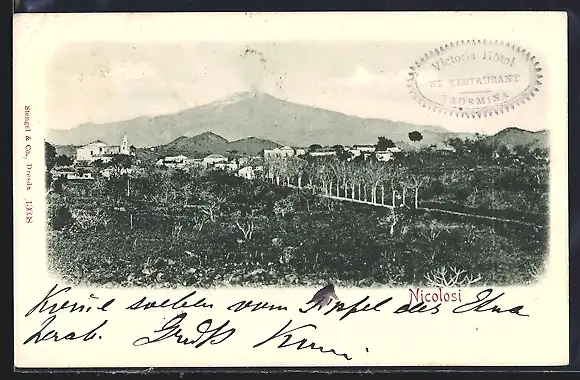 Victoria Hôtel
ET RESTAURANT
TAORMINA
Stengel & Co., Dresda 13938
Nicolosi
Komme soeben vom Gipfel des Etna
herab. Gruß